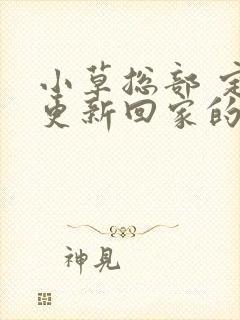 小草总部 定
更新回家的
神見